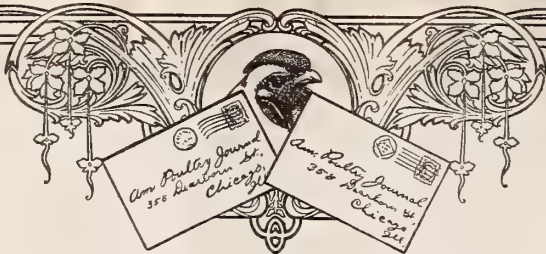 Am Poultry Journal
358 Dearborn St.,
Chicago,
Ill
Am. Poultry Journal
358 Dearborn St,
Chicago
Ill.